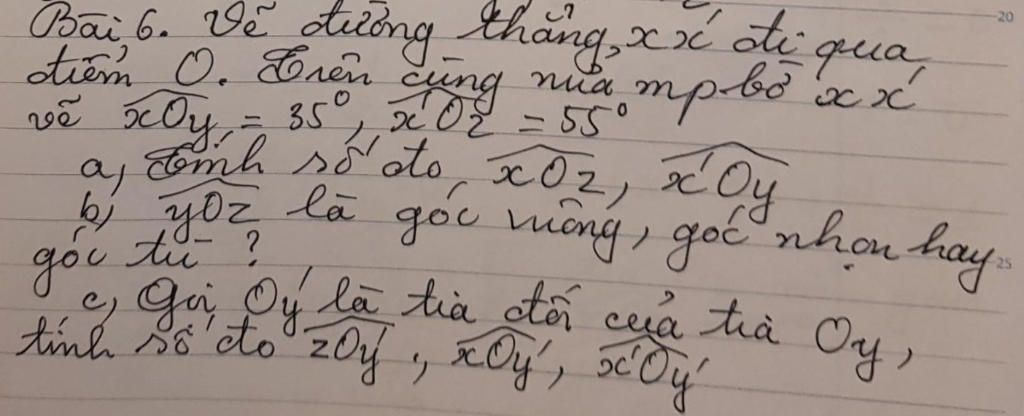 Bài 6. Vẽ đường thẳng xx' đi qua
điểm O. Trên cùng nửa mp bờ xx'
vẽ xOy = 35°, x'Oz = 55°
a, Tính số đo xOz, x'Oy
b, yOz là góc vuông, góc nhọn hay
góc tù ?
c, Gọi Oy' là tia đối của tia Oy,
tính số đo zOy', xOy', x'Oy'
20
25